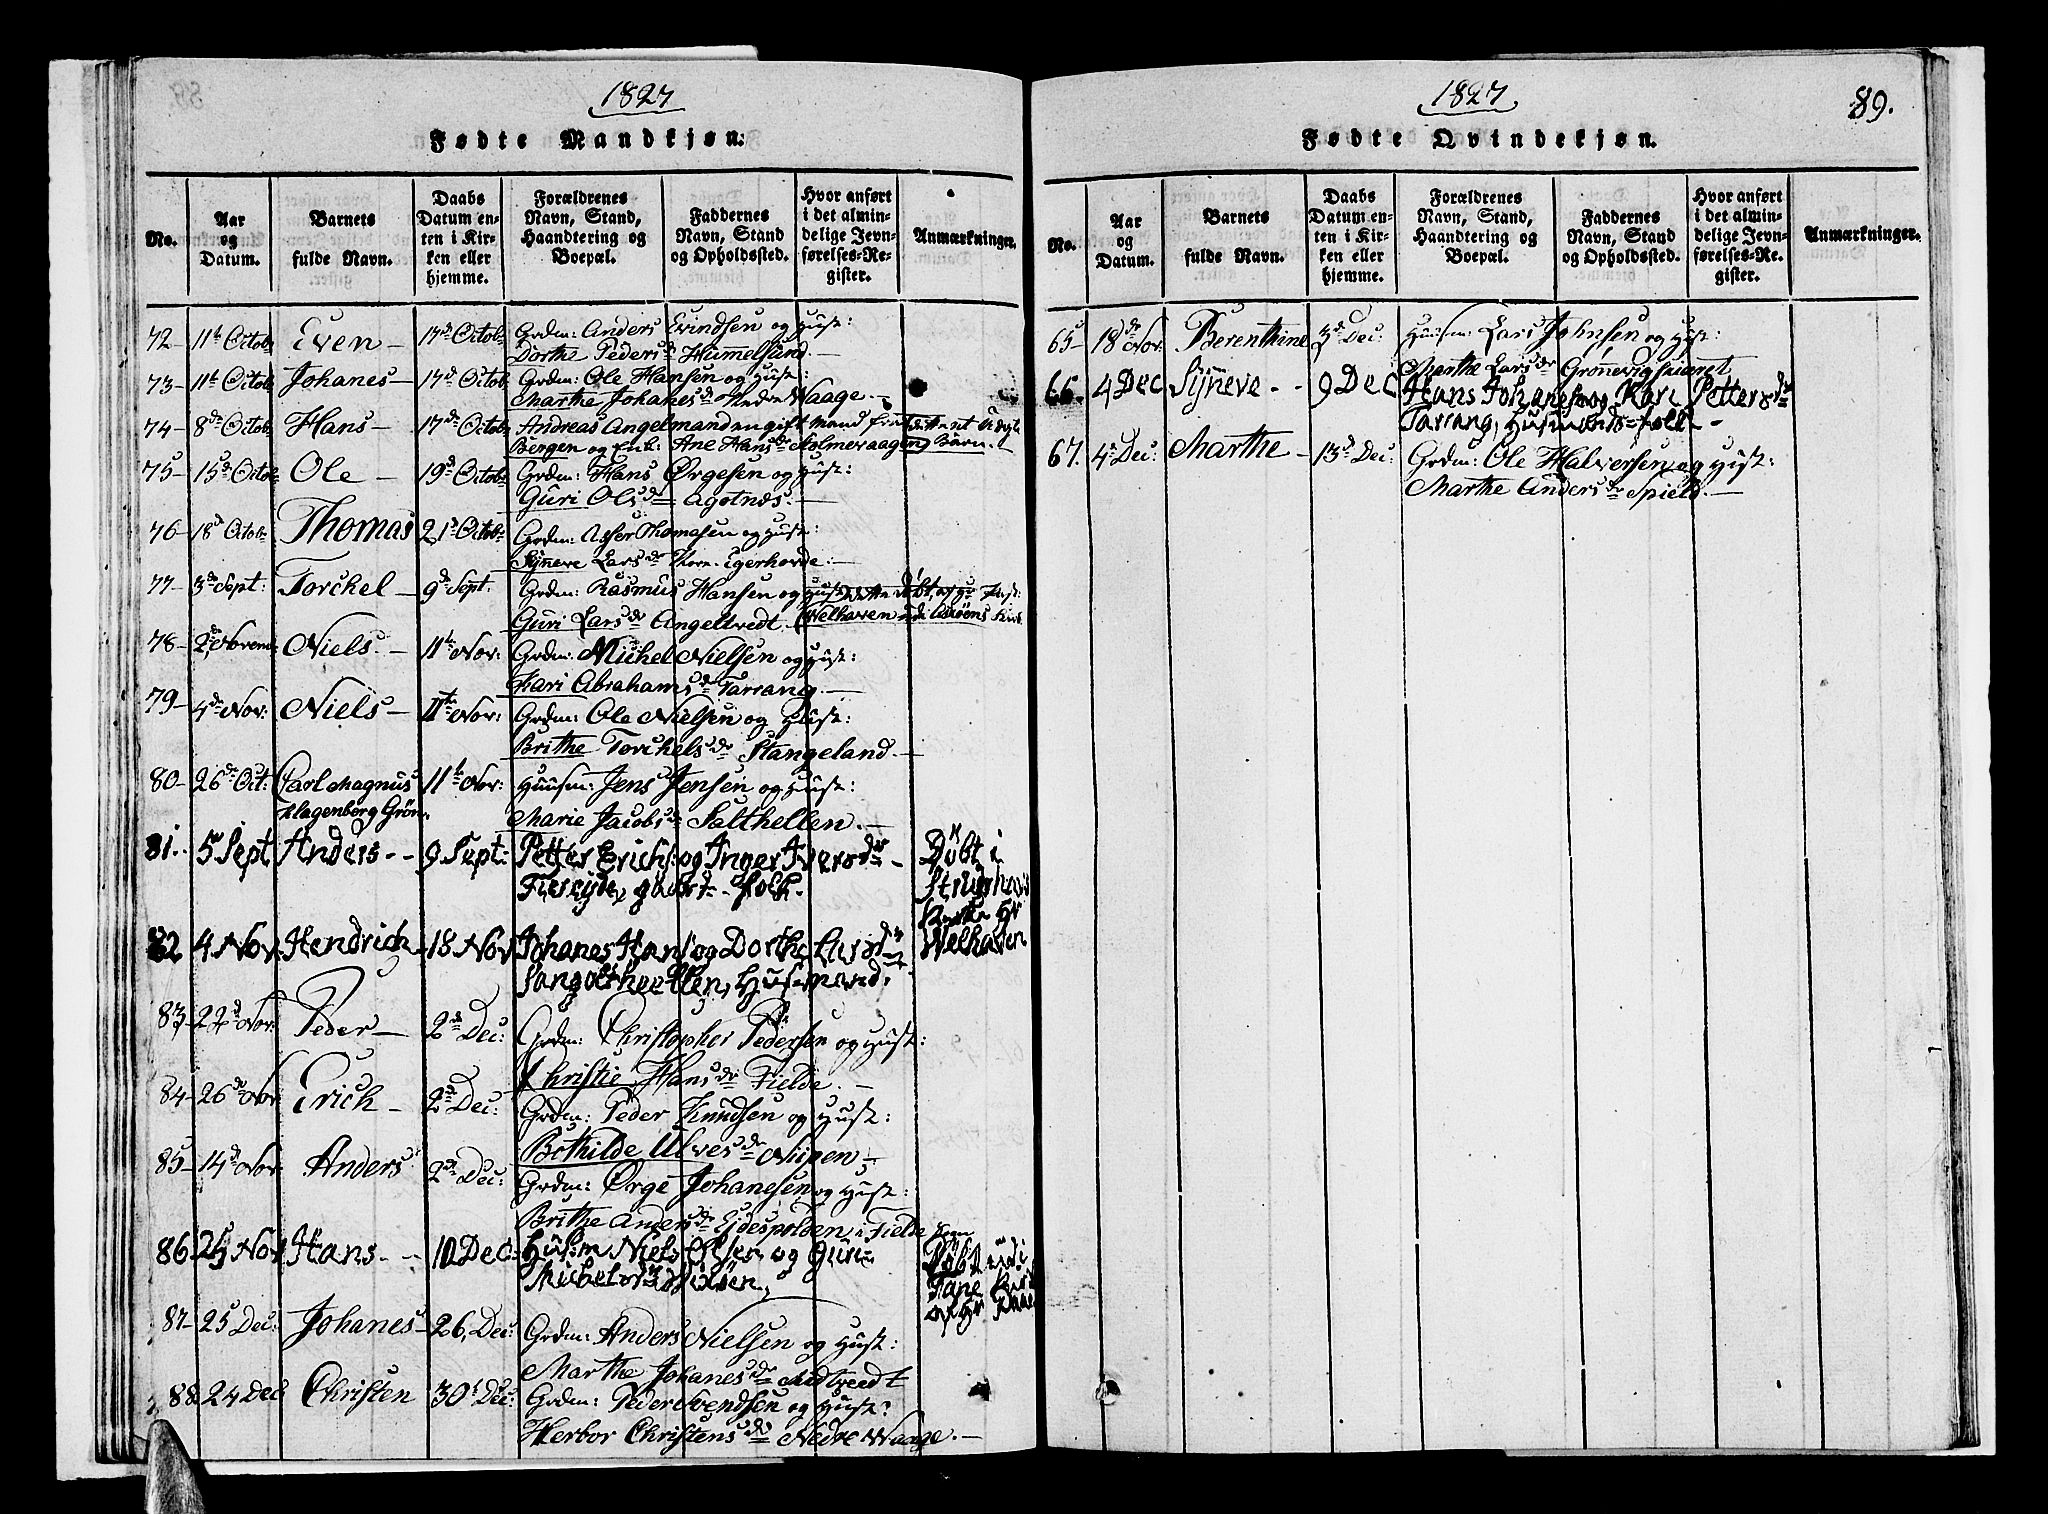 1827
Fødte Mandkjøn.
No.
Aar og Datum.
Barnets fulde Navn.
Daabs Datum enten i Kirken eller hjemme.
Forældrenes Navn, Stand, Haandtering og Boepæl.
Faddernes Navn, Stand og Opholdssted.
Hvor anført i det almindelige Jevnførelses-Register.
Anmærkninger.
72- 11t Octob: Even - 17de Octob: Grdm: Anders Evindsen og Hust:
Dorthe Peders dr Hummelsund. -
73- 11t Octob: Johanes - 17de Octob: Grdm: Ole Hansen og Hust:
Marthe Johanes dr Nedre Waage. -
74- 8de Octob: Hans - 17de Octob: Andreas Angel mand en gift Mand fra
Bergen og Enk: Ane Hans dr Holmevaagen Barn. -
75- 15de Octob: Ole - 19de Octob: Grdm: Hans Ørgesen og Hust:
Guri Ols dr Agotnæs. -
76- 18d Octob: Thomas 21d Octob: Grdm: Asser Thomasen og Hust:
Syneve Lars dr Egerhovde: -
77- 3de Sept: Torchel - 9de Sept. Grdm: Rasmus Hansen og Hust: Døbt, af Hr
Guri Lars dr Angeltvedt. Welhaven
78- 2de Novem: Niels. - 11te Nov: Grdm: Michel Nielsen og Hust:
Kari Abrahams dr Tarrang. -
79- 4de Nov: Niels - 11te Nov: Grdm: Ole Nielsen og Hust:
Brithe Torchels dr Stangeland. -
80- 26de Oct: Carl Magnus 11te Nov: Huusm: Jens Jensen og Hust:
Klagenberg Grön. Marie Jacobs dr Salthellen. -
81. 5 Sept Anders - - 9 Sept: Petter Erichs: og Inger Ivers dr - Døbt i
folk.
Hr
82 4 Nov Hendrich - 18 Nov Johanes Hans og Dorthe Lars dr Welhaven
Husmand.
83- 22d Nov: Peder - 2de Dec: Grdm: Christopher Pedersen og Hust:
Christie Hans dr Fielde. -
84- 26de Nov Erich - 2de Dec: Grdm: Peder Knudsen og Hust:
Bothilde Ulves dr Nipen -
85- 14de Nov: Anders 2de Dec: Grdm: Ørge Johanesen og Hust:
Brithe Anders dr i Fielde
86 25 Nov Hans - - 10 Dec: Husm Niels Olsen og Guri Døbt
Michels dr Fane
af Hr
87- 25 Dec: Johanes - 26, Dec: Grdm: Anders Nielsen og Hust:
Marthe Johanes dr Midtveedt
88. 24 Dec Christen 30t Dec: Grdm: Peder Svendsen og Hust:
Herbor Christens dr Nedre Waage. -
1827
89.
Fødte Qvindekjøn.
No.
Aar og Datum.
Barnets fulde Navn.
Daabs Datum enten i Kirken eller hjemme.
Forældrenes Navn, Stand, Haandtering og Boepæl.
Faddernes Navn, Stand og Opholdssted.
Hvor anført i det almindelige Jevnførelses-Register.
Anmærkninger.
65- 18de Nov: Berenthine 3de Dec: Huusm: Lars Johnsen og Hust:
Marthe Lars dr Grönevigsøiæret
66. 4 Dec Syneve - - 9 Dec Hans Johanes og Kari Petters dr
Tarrang, Husmands-folk -
67. 4de Dec: Marthe - 13de Dec: Grdm: Ole Halversen og Hust:
Marthe Anders dr Spield. -